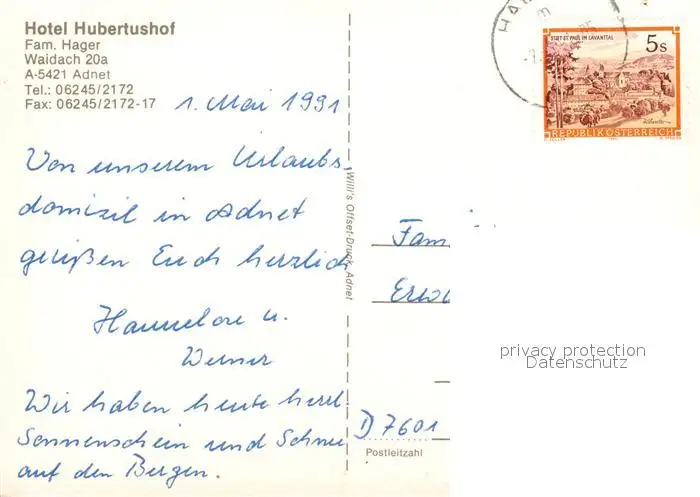 Hotel Hubertushof
Fam. Hager
Waidach 20a
A-5421 Adnet
Tel.: 06245/2172
Fax: 06245/2172-17
1. Mai 1991
Von unserem Urlaubs-
domizil in Adnet
grüßen Euch herzlich
Hannelore u.
Werner
Wir haben heute herrl.
Sonnenschein und Schnee
auf den Bergen.
Willi's Offset-Druck, Adnet
STIFT ST. PAUL IM LAVANTTAL
5s
REPUBLIK ÖSTERREICH
HA
Fam
Erw
D 7601
Postleitzahl
privacy protection
Datenschutz